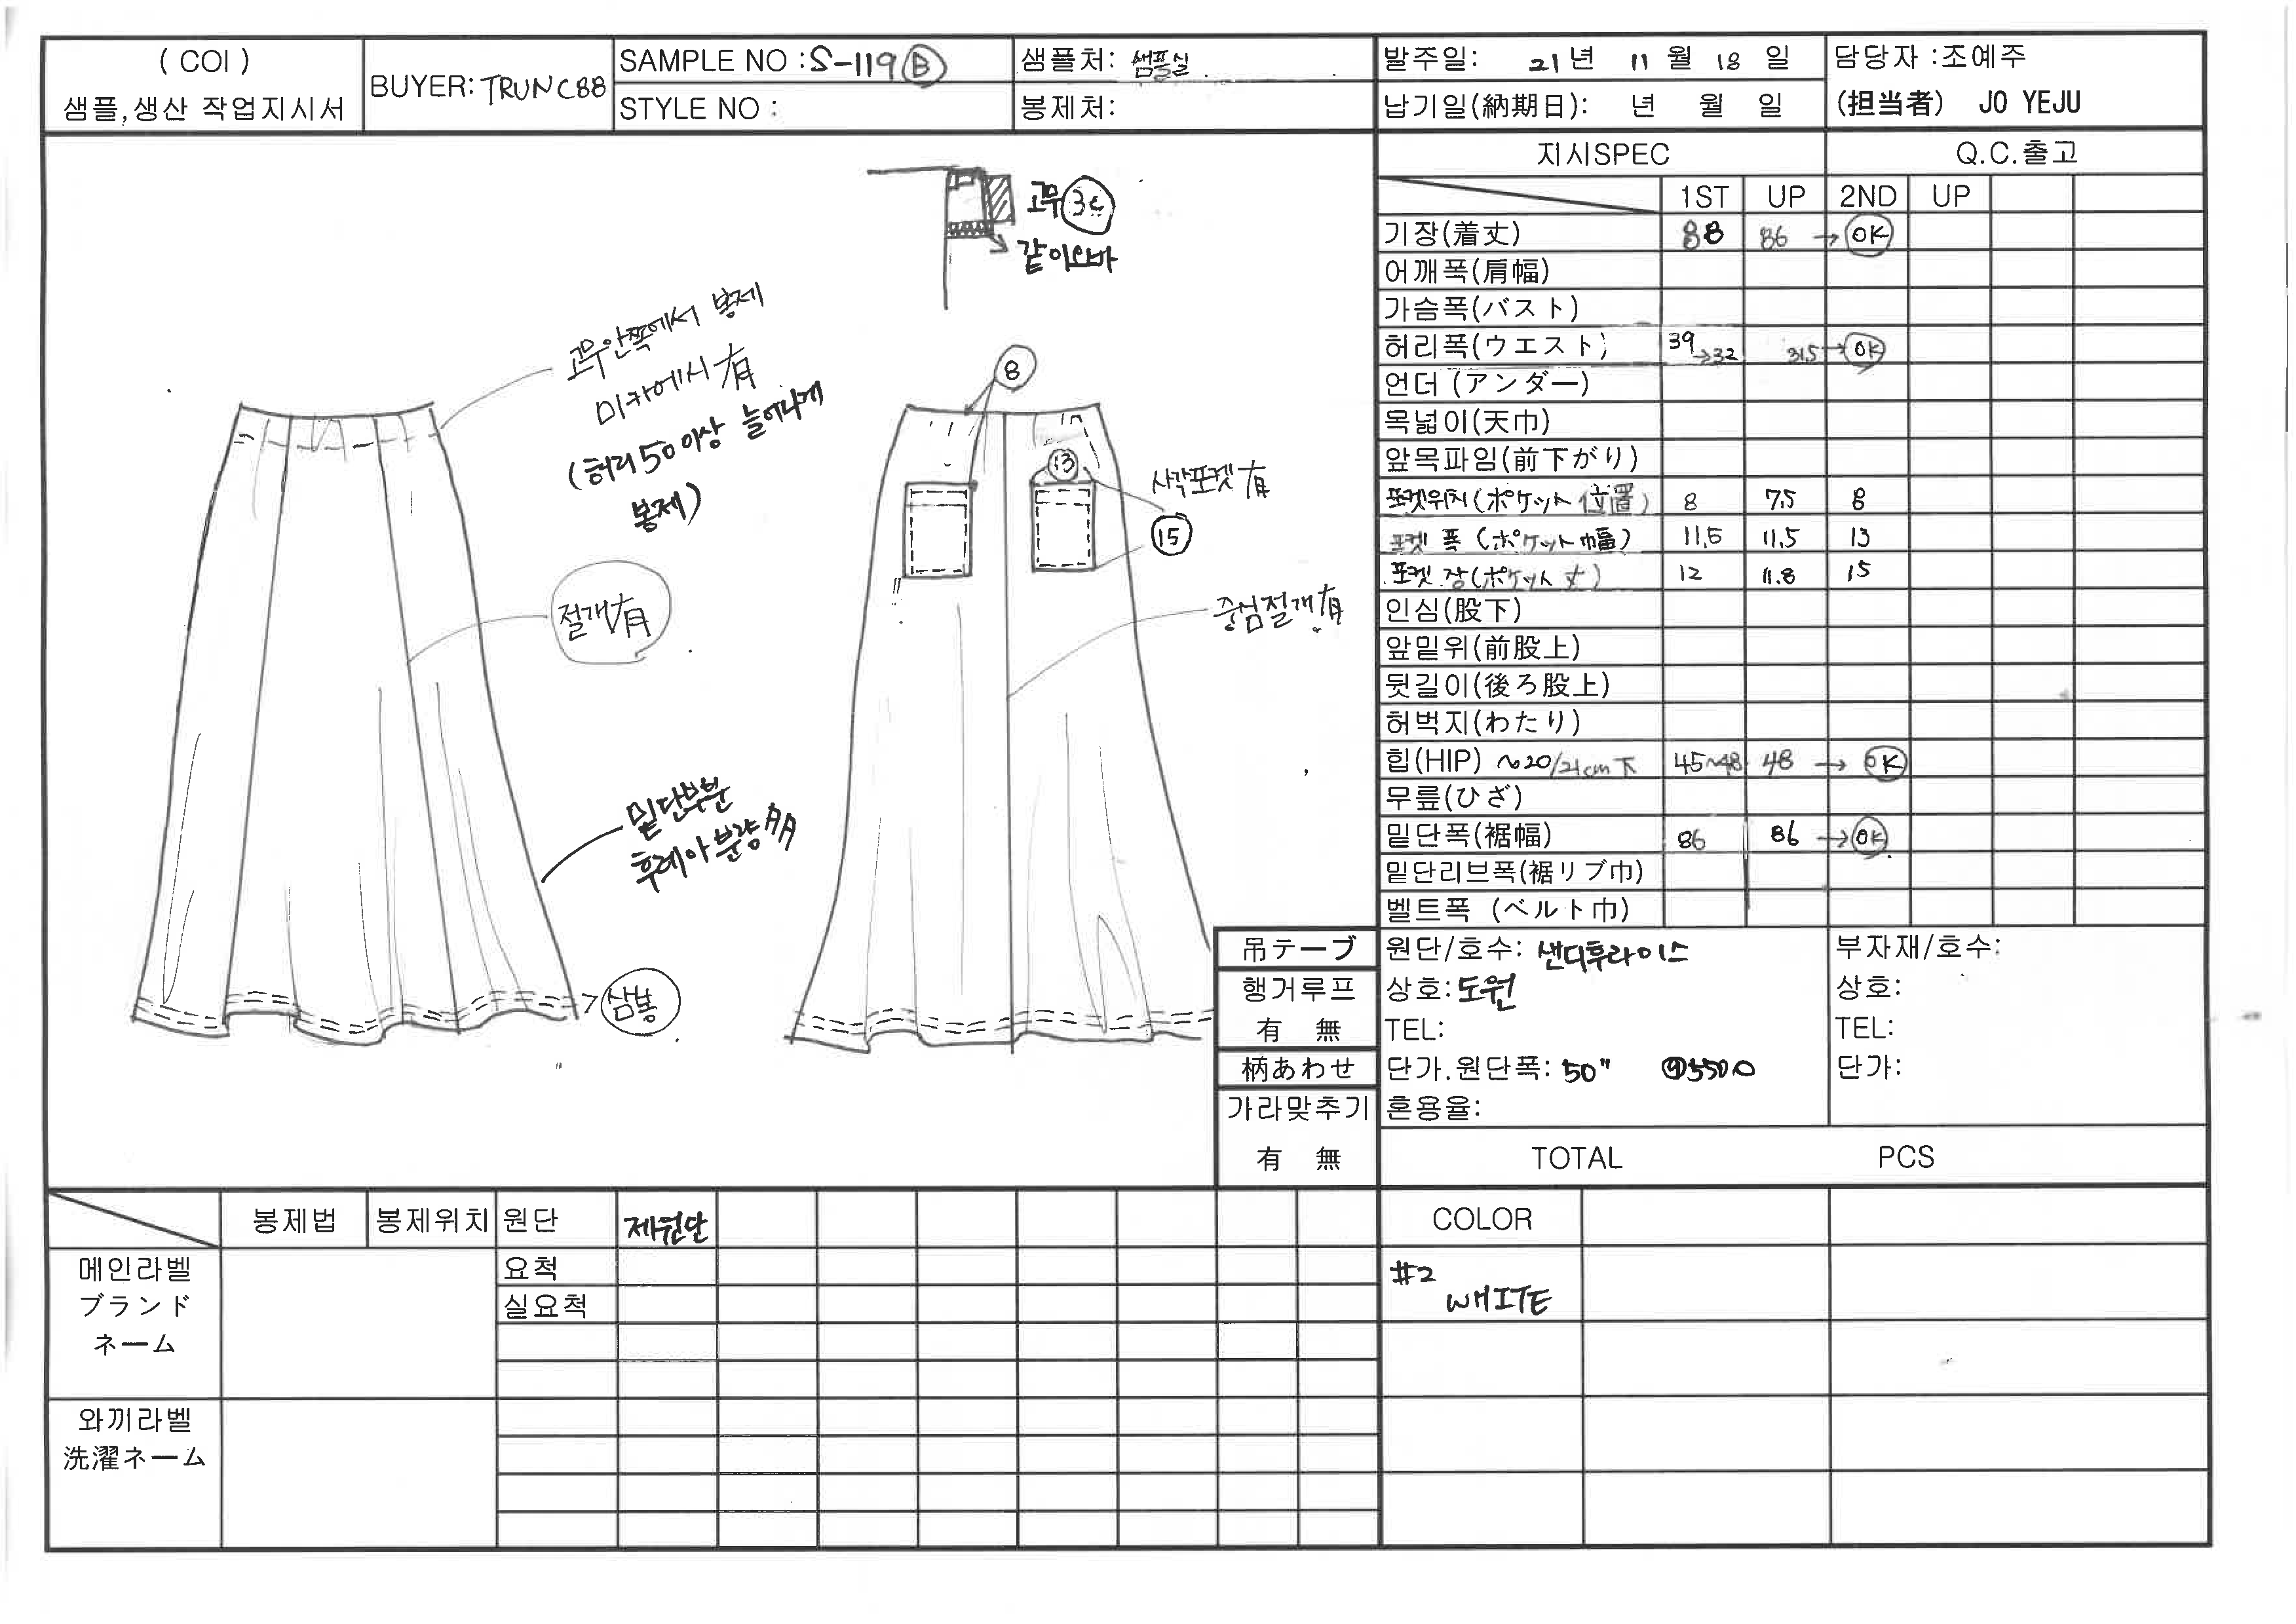 ( COI )
샘플,생산 작업지시서
BUYER: TRUNC88
SAMPLE NO : S-119 Ⓑ
STYLE NO :
샘플처: 샘플실
봉제처:
발주일: 21년 11월 18일
납기일(納期日): 년 월 일
담당자 :조예주
(担当者) JO YEJU
고무 3c
같이오바
고무안쪽에서 봉제
미카에시 有
(허리 50이상 늘어나게
봉제)
절개有
밑단부분
후레아 분량
삼봉
8
13
사각포켓 有
15
중심절개有
지시SPEC Q.C.출고
1ST UP 2ND UP
기장(着丈) 88 86 → OK
어깨폭(肩幅)
가슴폭(バスト)
허리폭(ウエスト) 39→32 31.5 → OK
언더 (アンダー)
목넓이(天巾)
앞목파임(前下がり)
포켓위치(ポケット 位置) 8 7.5 8
포켓 폭 (ポケット 幅) 11.5 11.5 13
포켓 장(ポケット 丈) 12 11.8 15
인심(股下)
앞밑위(前股上)
뒷길이(後ろ股上)
허벅지(わたり)
힙(HIP) ~20/21cm下 45~48 48 → OK
무릎(ひざ)
밑단폭(裾幅) 86 86 → OK
밑단리브폭(裾リブ巾)
벨트폭 (ベルト巾)
吊テープ
행거루프
有 無
柄あわせ
가라맞추기
有 無
원단/호수: 샌디후라이스
상호: 도원
TEL:
단가.원단폭: 50" @5500
혼용율:
부자재/호수:
상호:
TEL:
단가:
TOTAL PCS
봉제법 봉제위치 원단 제원단
요척
실요척
메인라벨
ブランド
ネーム
와끼라벨
洗濯ネーム
COLOR
#2
WHITE